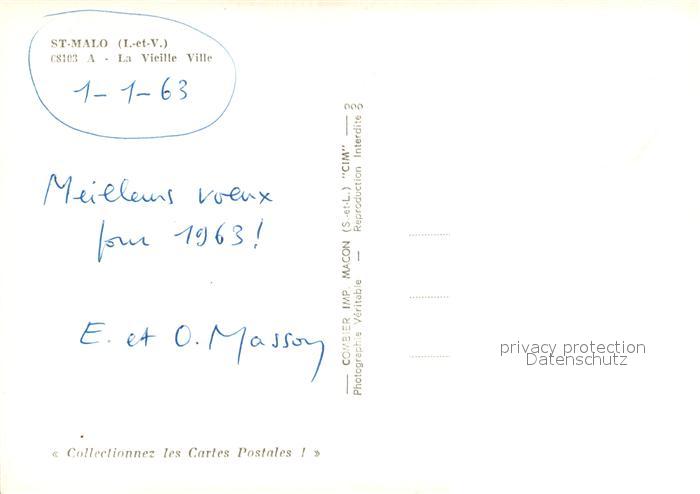 ST-MALO (I.-et-V.)
C8103 A - La Vieille Ville
1-1-63
Meilleurs voeux
pour 1963!
E. et O. Masson
« Collectionnez les Cartes Postales ! »
— COMBIER IMP. MACON (S.-et-L.) "CIM" —
Photographie Véritable — Reproduction Interdite
privacy protection
Datenschutz